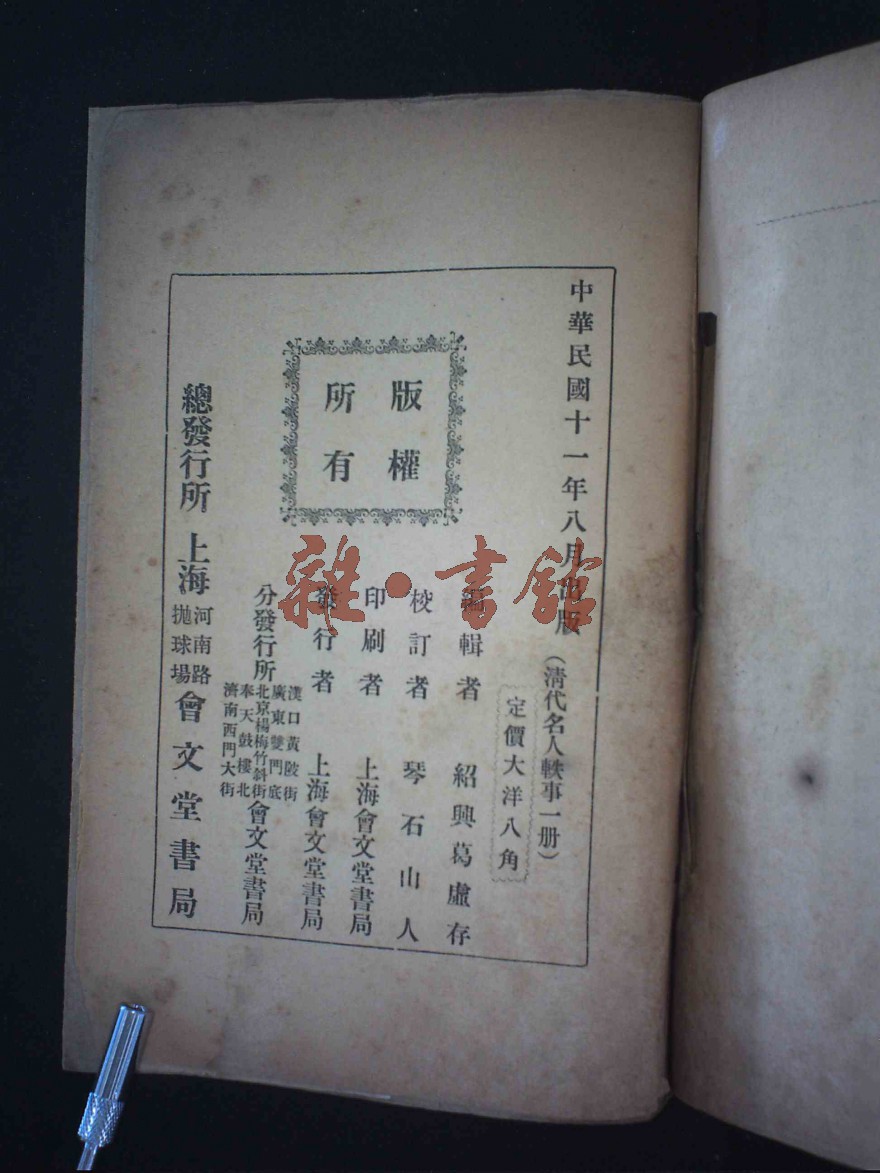 中華民國十一年八月出版
(清代名人軼事一册)
定價大洋八角
版權
所有
編輯者 紹興葛虛存
校訂者 琴石山人
印刷者 上海會文堂書局
發行者 上海會文堂書局
分發行所
漢口黃陂街
廣東雙門底
北京楊梅竹斜街
奉天鼓樓北
濟南西門大街
會文堂書局
總發行所 上海
河南路
拋球場
會文堂書局
雜·書館